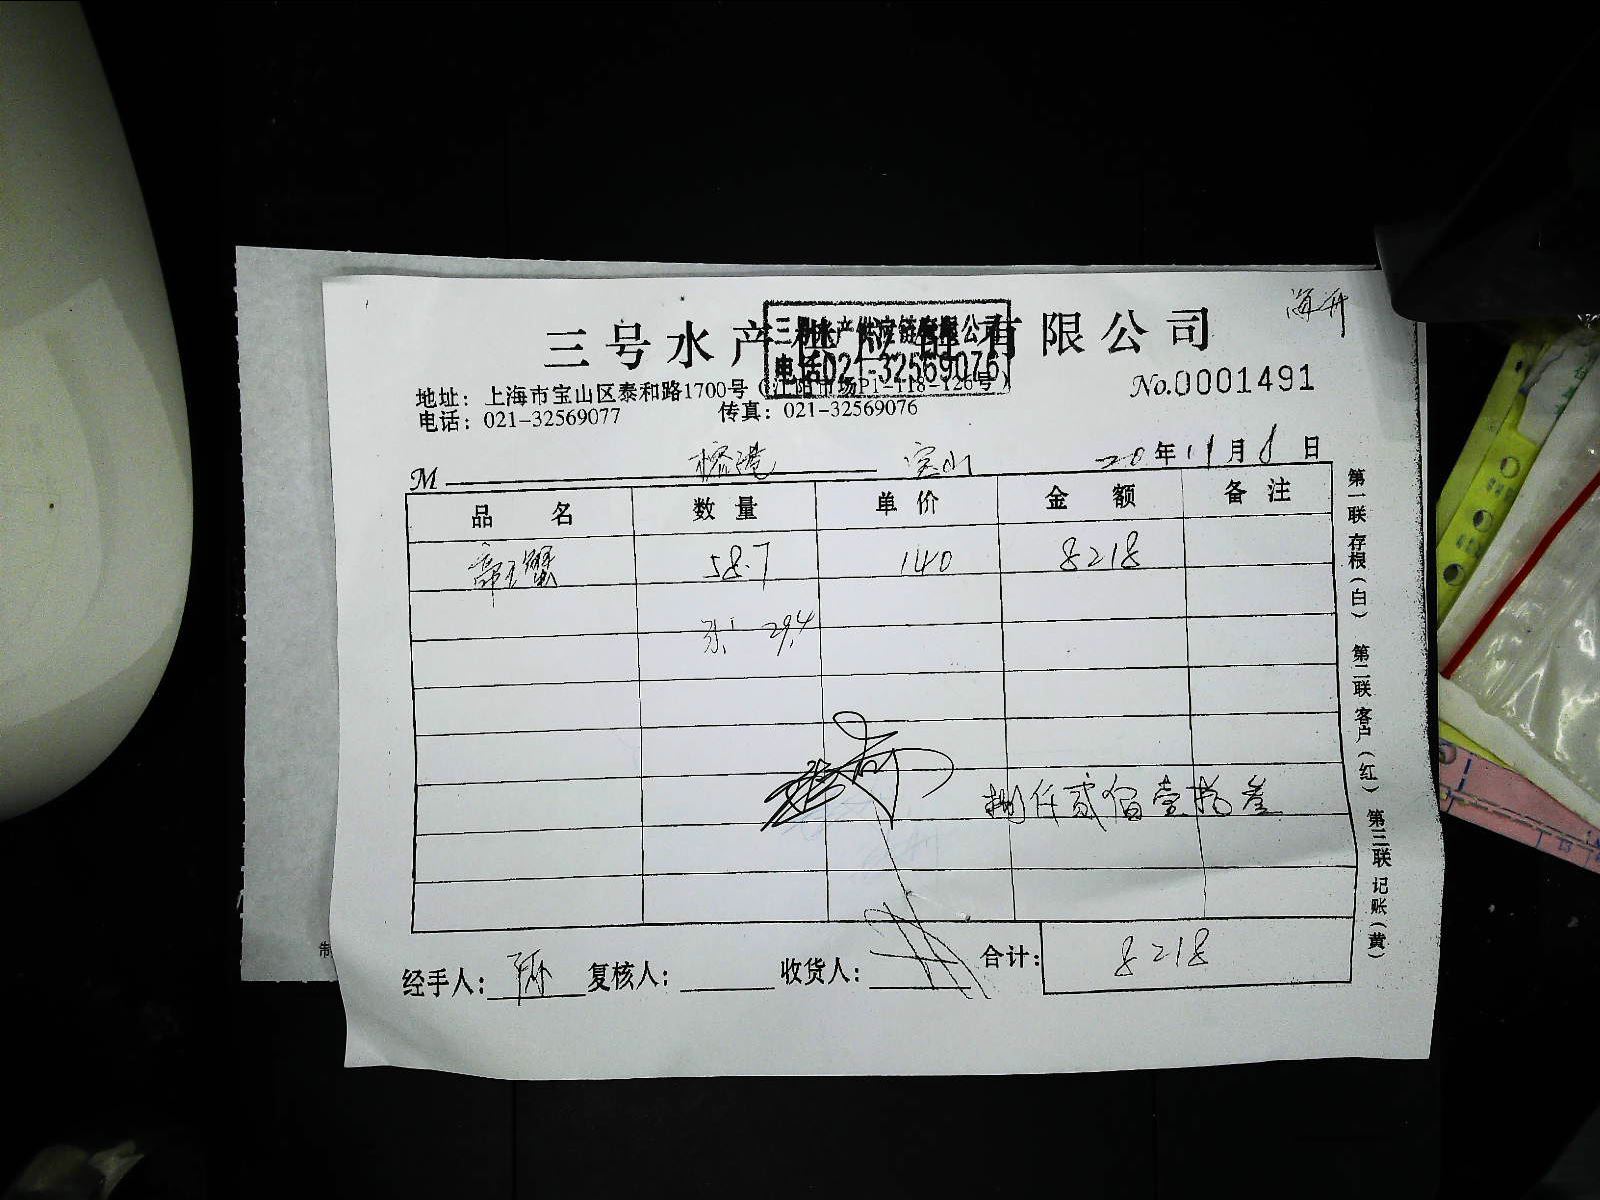 海开
三号水产供应链有限公司
三号水产供应链有限公司
电话021-32569076
地址：上海市宝山区泰和路1700号（江阳市场P1-118-126号）
No.0001491
电话：021-32569077 传真：021-32569076
M 榕港 宝山 20年11月8日
品 名 数量 单价 金 额 备注
帝王蟹 58.7 140 8218
29.4
捌仟贰佰壹拾
经手人： 复核人： 收货人： 合计： 8218
第一联 存根（白） 第二联 客户（红） 第三联 记账（黄）
制